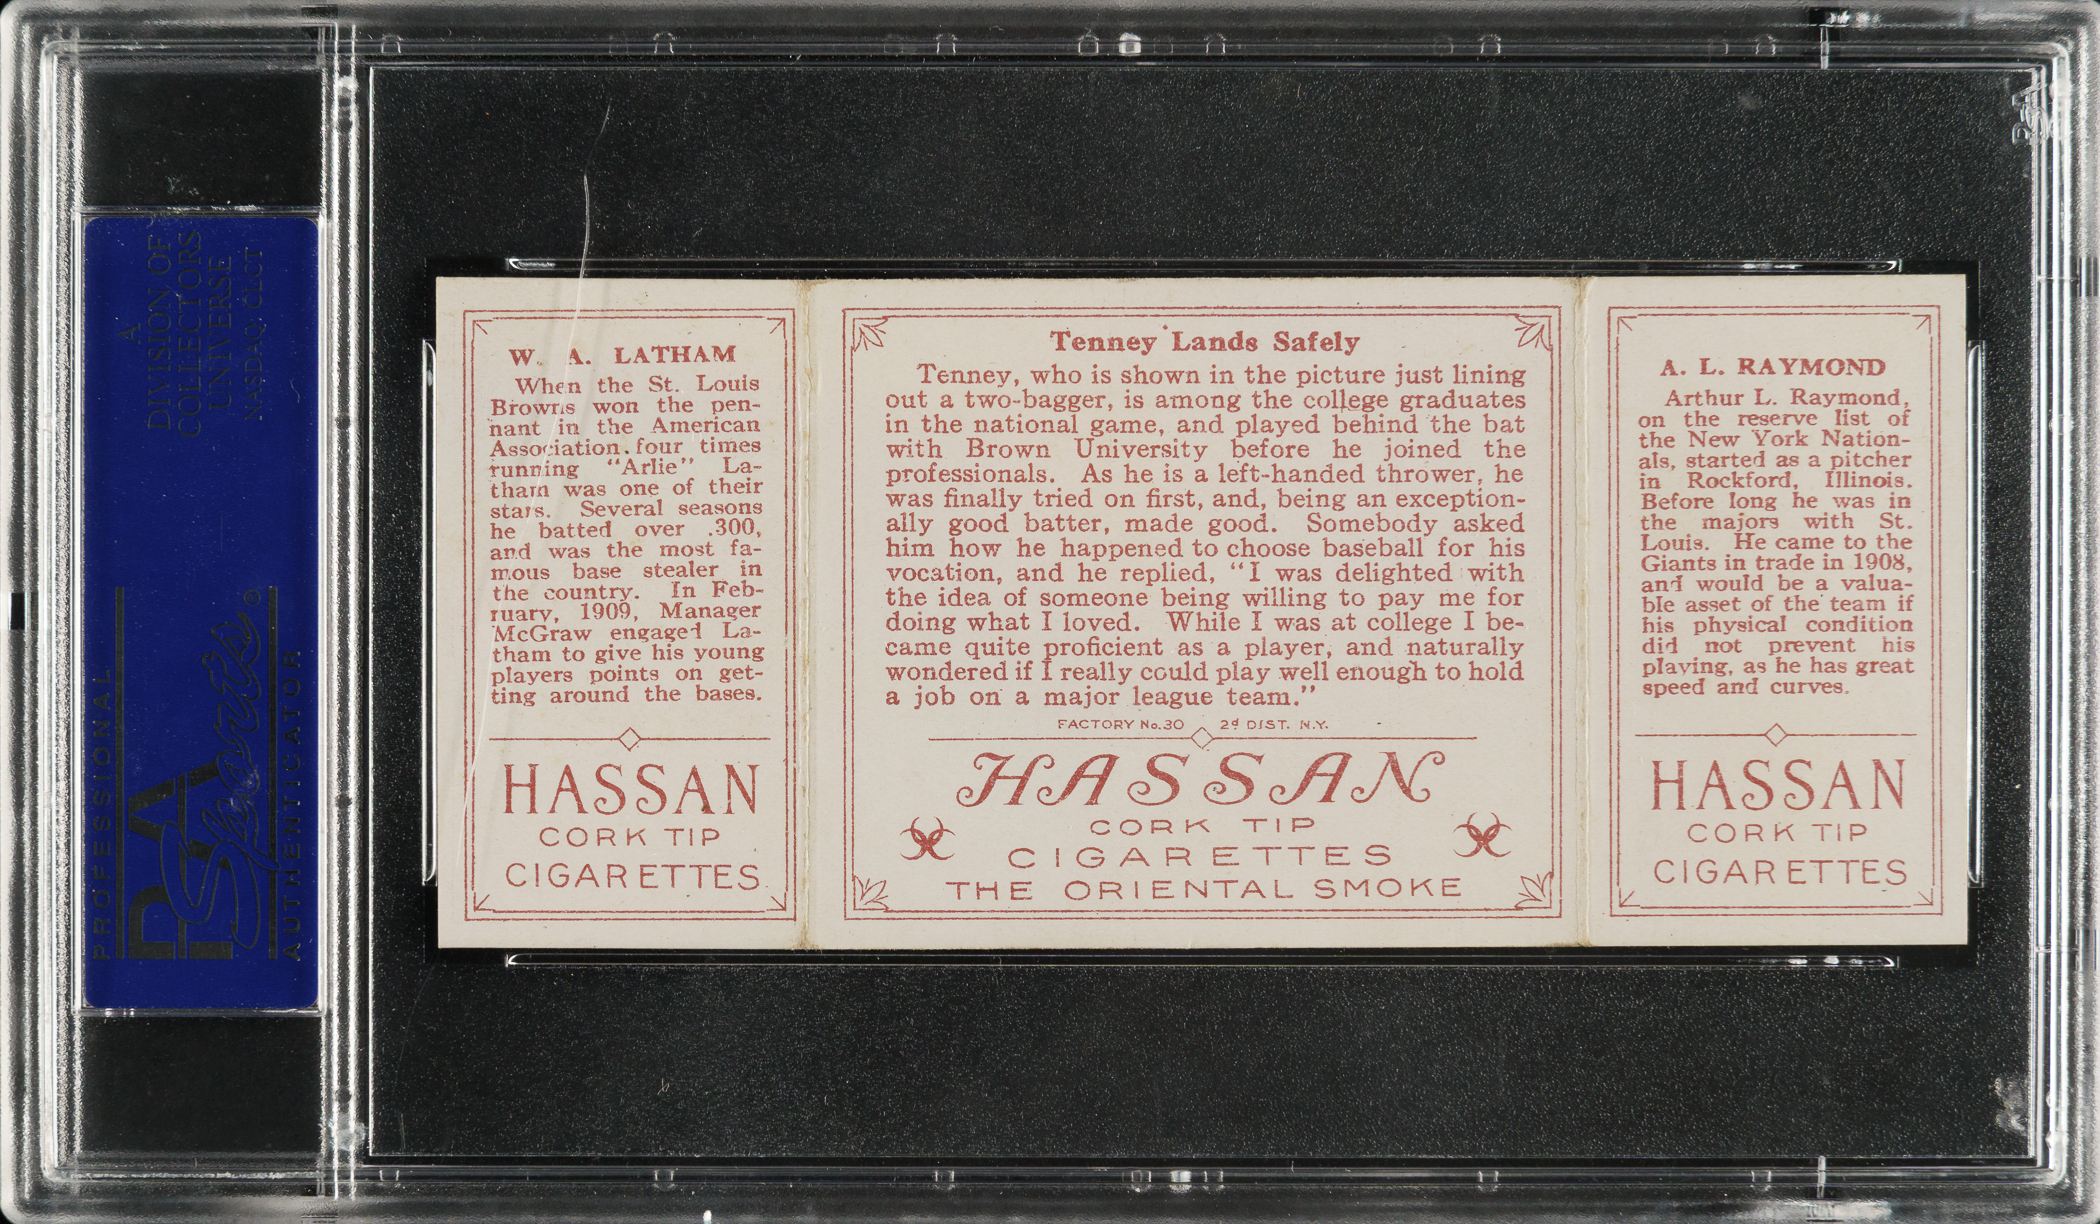 A
DIVISION OF
COLLECTORS
UNIVERSE
NASDAQ: CLCT
PROFESSIONAL
PSA
Sports®
AUTHENTICATOR
W. A. LATHAM
When the St. Louis
Browns won the pen-
nant in the American
Association four times
running "Arlie" La-
tham was one of their
stars. Several seasons
he batted over .300,
and was the most fa-
mous base stealer in
the country. In Feb-
ruary, 1909, Manager
McGraw engaged La-
tham to give his young
players points on get-
ting around the bases.
HASSAN
CORK TIP
CIGARETTES
Tenney Lands Safely
Tenney, who is shown in the picture just lining
out a two-bagger, is among the college graduates
in the national game, and played behind the bat
with Brown University before he joined the
professionals. As he is a left-handed thrower, he
was finally tried on first, and, being an exception-
ally good batter, made good. Somebody asked
him how he happened to choose baseball for his
vocation, and he replied, "I was delighted with
the idea of someone being willing to pay me for
doing what I loved. While I was at college I be-
came quite proficient as a player, and naturally
wondered if I really could play well enough to hold
a job on a major league team."
FACTORY No. 30 2d DIST. N.Y.
HASSAN
CORK TIP
CIGARETTES
THE ORIENTAL SMOKE
A. L. RAYMOND
Arthur L. Raymond,
on the reserve list of
the New York Nation-
als, started as a pitcher
in Rockford, Illinois.
Before long he was in
the majors with St.
Louis. He came to the
Giants in trade in 1908,
and would be a valua-
ble asset of the team if
his physical condition
did not prevent his
playing, as he has great
speed and curves.
HASSAN
CORK TIP
CIGARETTES
PSA